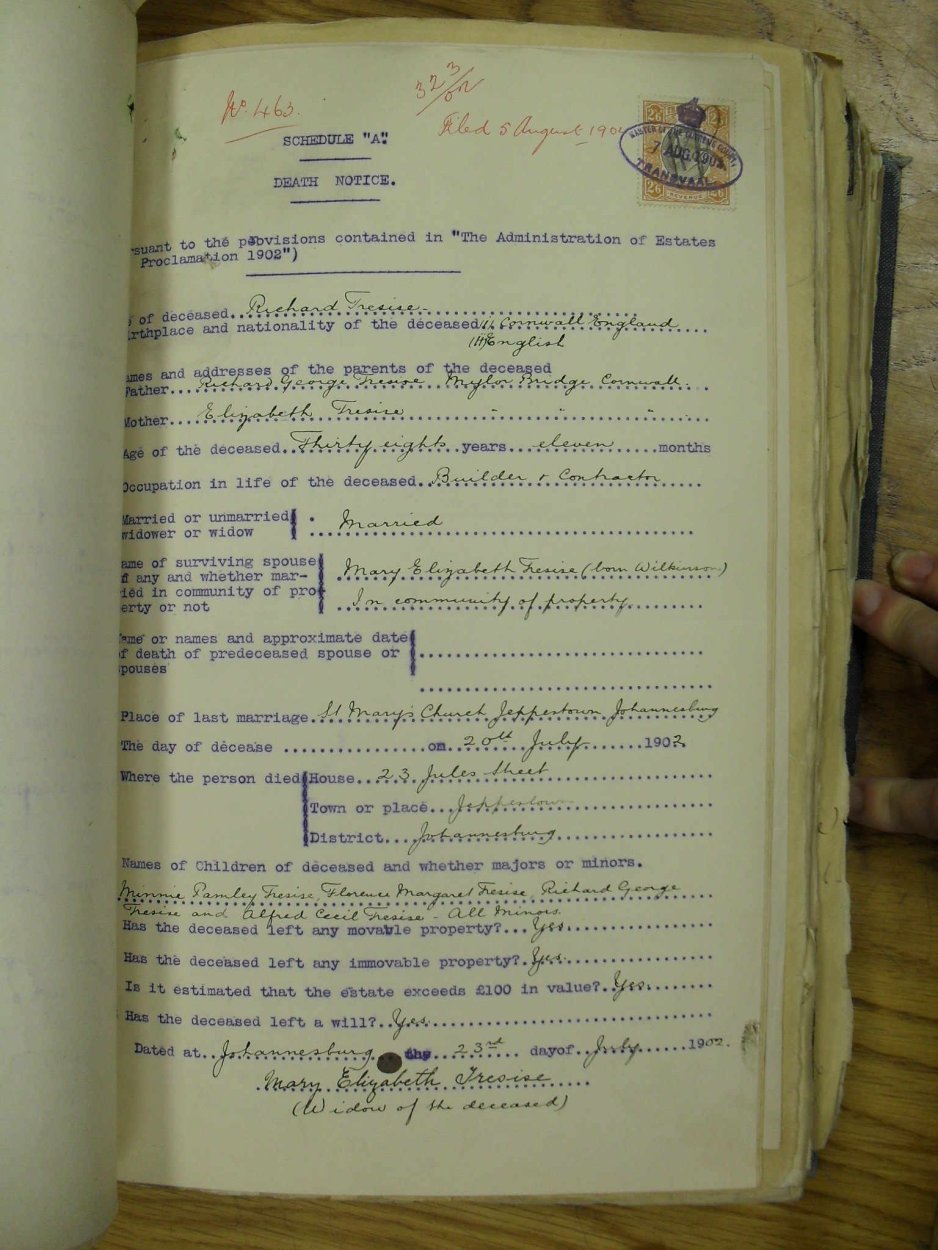 No. 463.
32 3/02
Filed 5 August 190
SCHEDULE "A".
DEATH NOTICE.
2/6
2/6
MASTER OF THE SUPREME COURT
7 AUG. 1902
TRANSVAAL
2/6 REVENUE 2/6
rsuant to the provisions contained in "The Administration of Estates
Proclamation 1902")
e of deceased..Richard Tresise
irthplace and nationality of the deceased (1) Cornwall England
(11) English
ames and addresses of the parents of the deceased
Father...Richard George Tresise Mylor Bridge Cornwall.
Mother...Elizabeth Tresise " " "
Age of the deceased..Thirty eight years...eleven months
Occupation in life of the deceased..Builder & Contractor
Married or unmarried
widower or widow
Married
ame of surviving spouse
if any and whether mar-
ried in community of pro
erty or not
Mary Elizabeth Tresise (born Wilkinson)
In community of property
ame or names and approximate date
of death of predeceased spouse or
spouses
Place of last marriage..St Mary's Church Jeppestown Johannesburg
The day of decease ..................on..20th July........1902.
Where the person died House...23 Jules Street
Town or place...Jeppestown
District...Johannesburg
Names of Children of deceased and whether majors or minors.
Minnie Pamley Tresise, Florence Margaret Tresise, Richard George
Tresise and Alfred Cecil Tresise - All Minors.
Has the deceased left any movable property?...Yes.
Has the deceased left any immovable property?.Yes.
Is it estimated that the estate exceeds £100 in value?..Yes.
Has the deceased left a will?..Yes.
Dated at..Johannesburg the...23rd.... dayof..July......1902.
Mary Elizabeth Tresise
(Widow of the deceased)